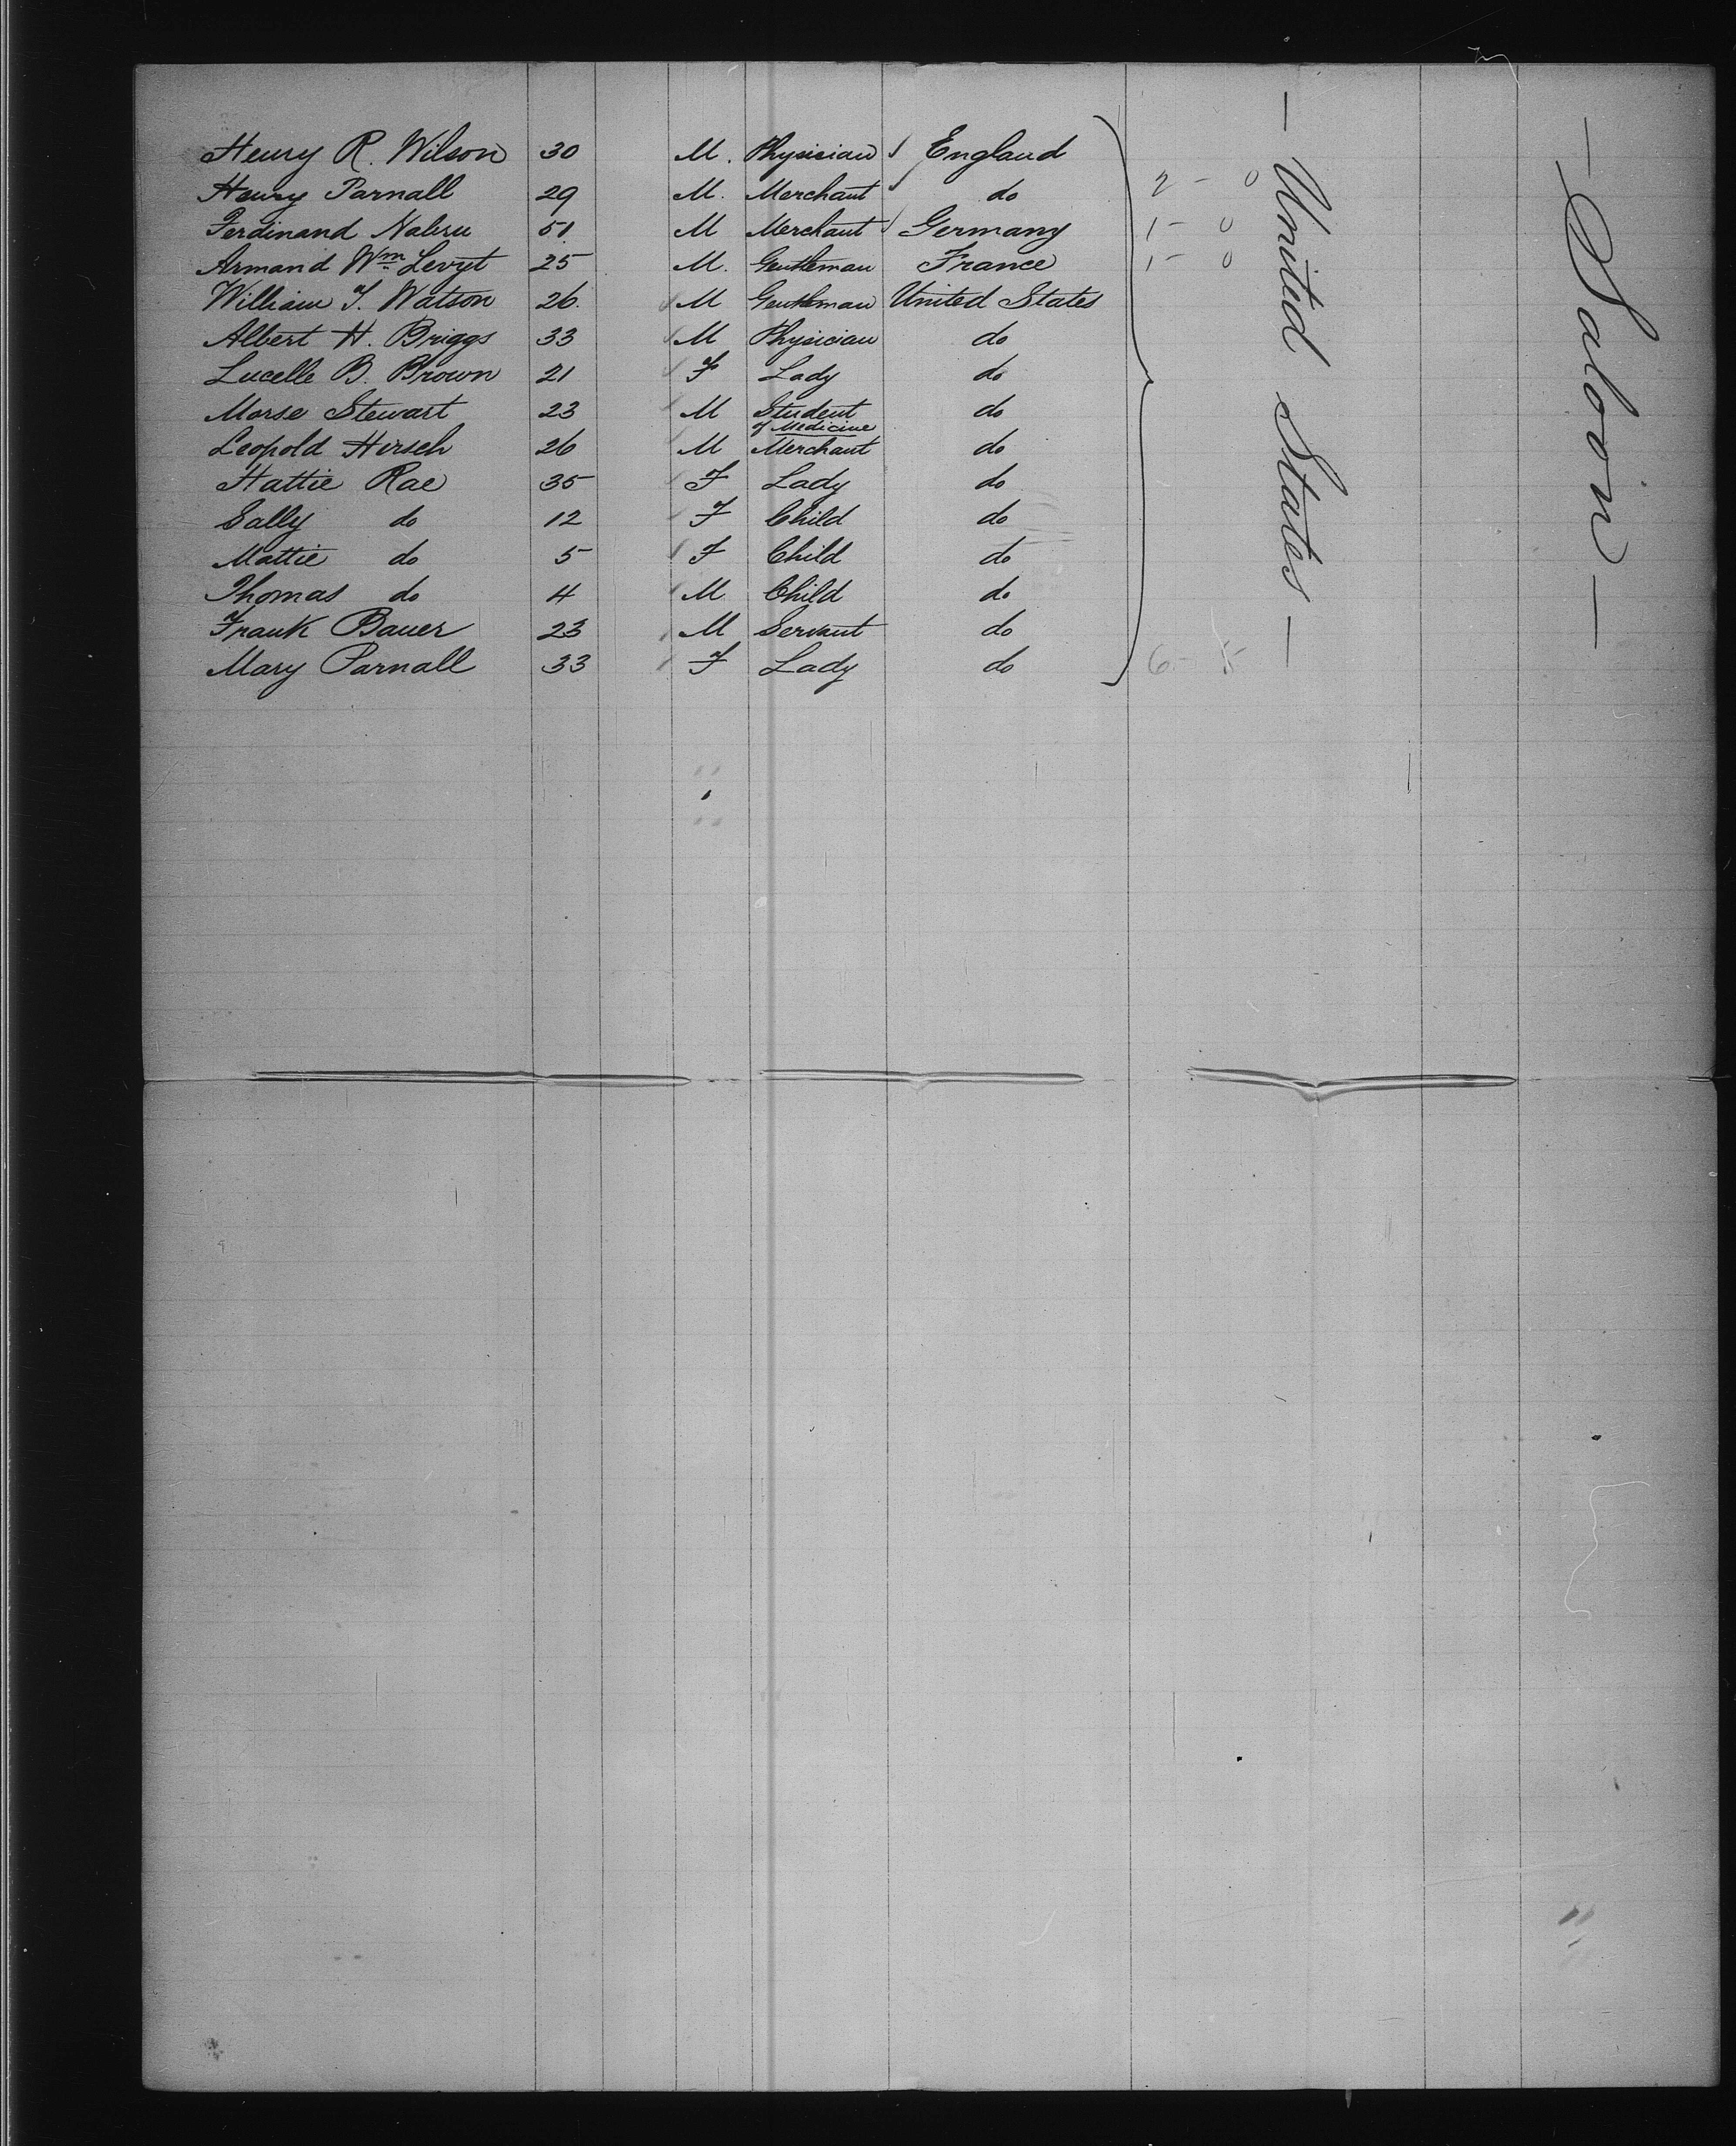 Henry R. Wilson 30 M. Physician England
Henry Parnall 29 M. Merchant do 2 - 0
Ferdinand 51 M Merchant Germany 1 - 0
Armand Wm 25 M. Gentleman France 1 - 0
William T. Watson 26. M Gentleman United States
Albert H. Briggs 33 M Physician do
Lucelle B. Brown 21 F Lady do
Morse Stewart 23 M Student do
of Medicine
Leopold Hirsch 26 M Merchant do
Hattie Rae 35 F Lady do
Sally do 12 F Child do
Mattie do 5 F Child do
Thomas do 4 M Child do
Frank Bauer 23 M Servant do
Mary Parnall 33 F Lady do 6 - 5
— United States —
— Saloon —